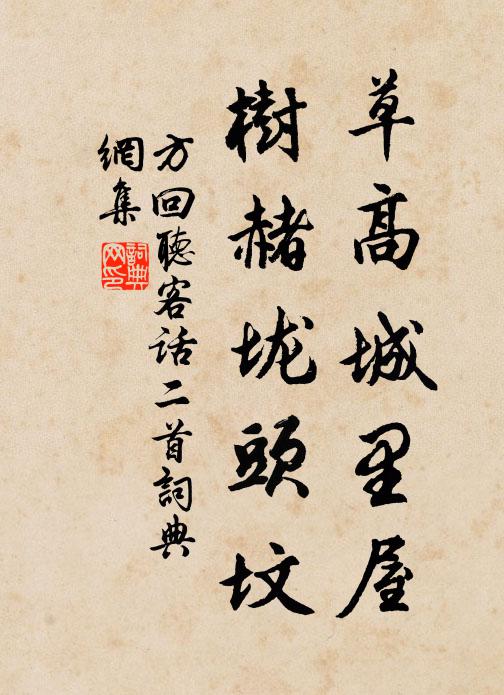 草高城里屋
樹赭垅頭坟
方回聽客话二首詞典
網集
詞典
网印